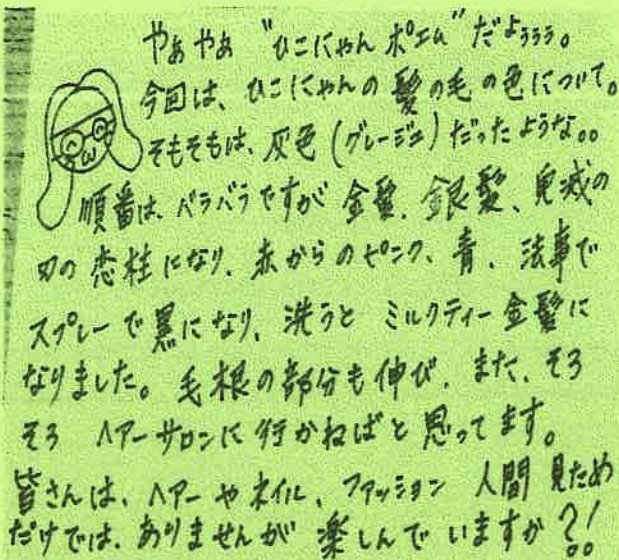 やぁやぁ "ひこにゃんポエム" だょぅぅぅ。
今回は、ひこにゃんの髪の毛の色について。
そもそもは、灰色(グレージュ)だったような。。
順番は、バラバラですが 金髪、銀髪、鬼滅の
刃の恋柱になり、赤からのピンク、青、法事で
スプレーで黒になり、洗うと ミルクティー金髪に
なりました。毛根の部分も伸び、また、そろ
そろ ヘアーサロンに行かねばと思ってます。
皆さんは、ヘアーやネイル、ファッション 人間 見ため
だけでは、ありませんが 楽しんでいますか?!